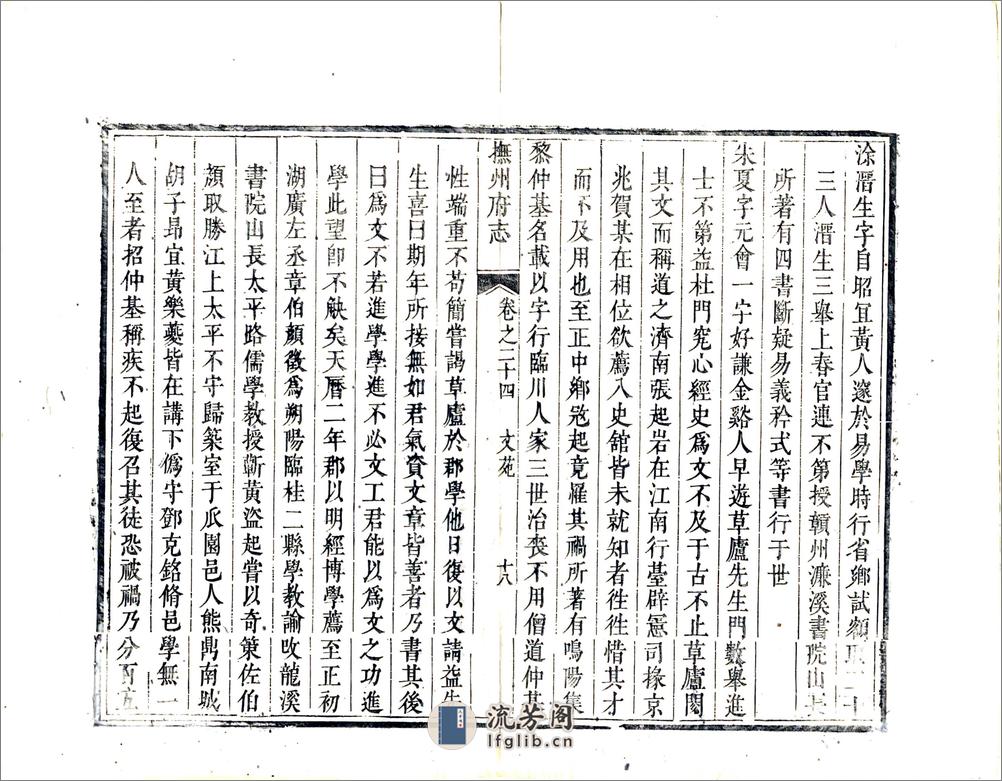 涂溍生字自昭宜黃人邃於易學時行省鄉試額取二十
三人溍生三舉上春官連不第授贛州濂溪書院山長
所著有四書斷疑易義矜式等書行于世
朱夏字元會一字好謙金谿人早遊草廬先生門數舉進
士不第益杜門究心經史爲文不及于古不止草廬閱
其文而稱道之濟南張起岩在江南行臺辟憲司掾京
兆賀某在相位欲薦入史舘皆未就知者徃徃惜其才
而不及用也至正中鄉冦起竟罹其禍所著有鳴陽集
黎仲基名載以字行臨川人家三世治喪不用僧道仲基
撫州府志 卷之二十四 文苑 十八
性端重不苟簡嘗謁草廬於郡學他日復以文請益先
生喜曰期年所接無如君氣資文章皆善者乃書其後
曰爲文不若進學學進不必文工君能以爲文之功進
學此望卽不觖矣天曆二年郡以明經博學薦至正初
湖廣左丞章伯顏徵爲朔陽臨桂二縣學教諭改龍溪
書院山長太平路儒學教授蘄黃盜起嘗以奇策佐伯
顏取勝江上太平不守歸築室于瓜園邑人熊鼎南城
胡子昻宜黃樂夔皆在講下僞守鄧克銘脩邑學無一
人至者招仲基稱疾不起復召其徒恐被禍乃分百五
流芳阁
lfglib.cn